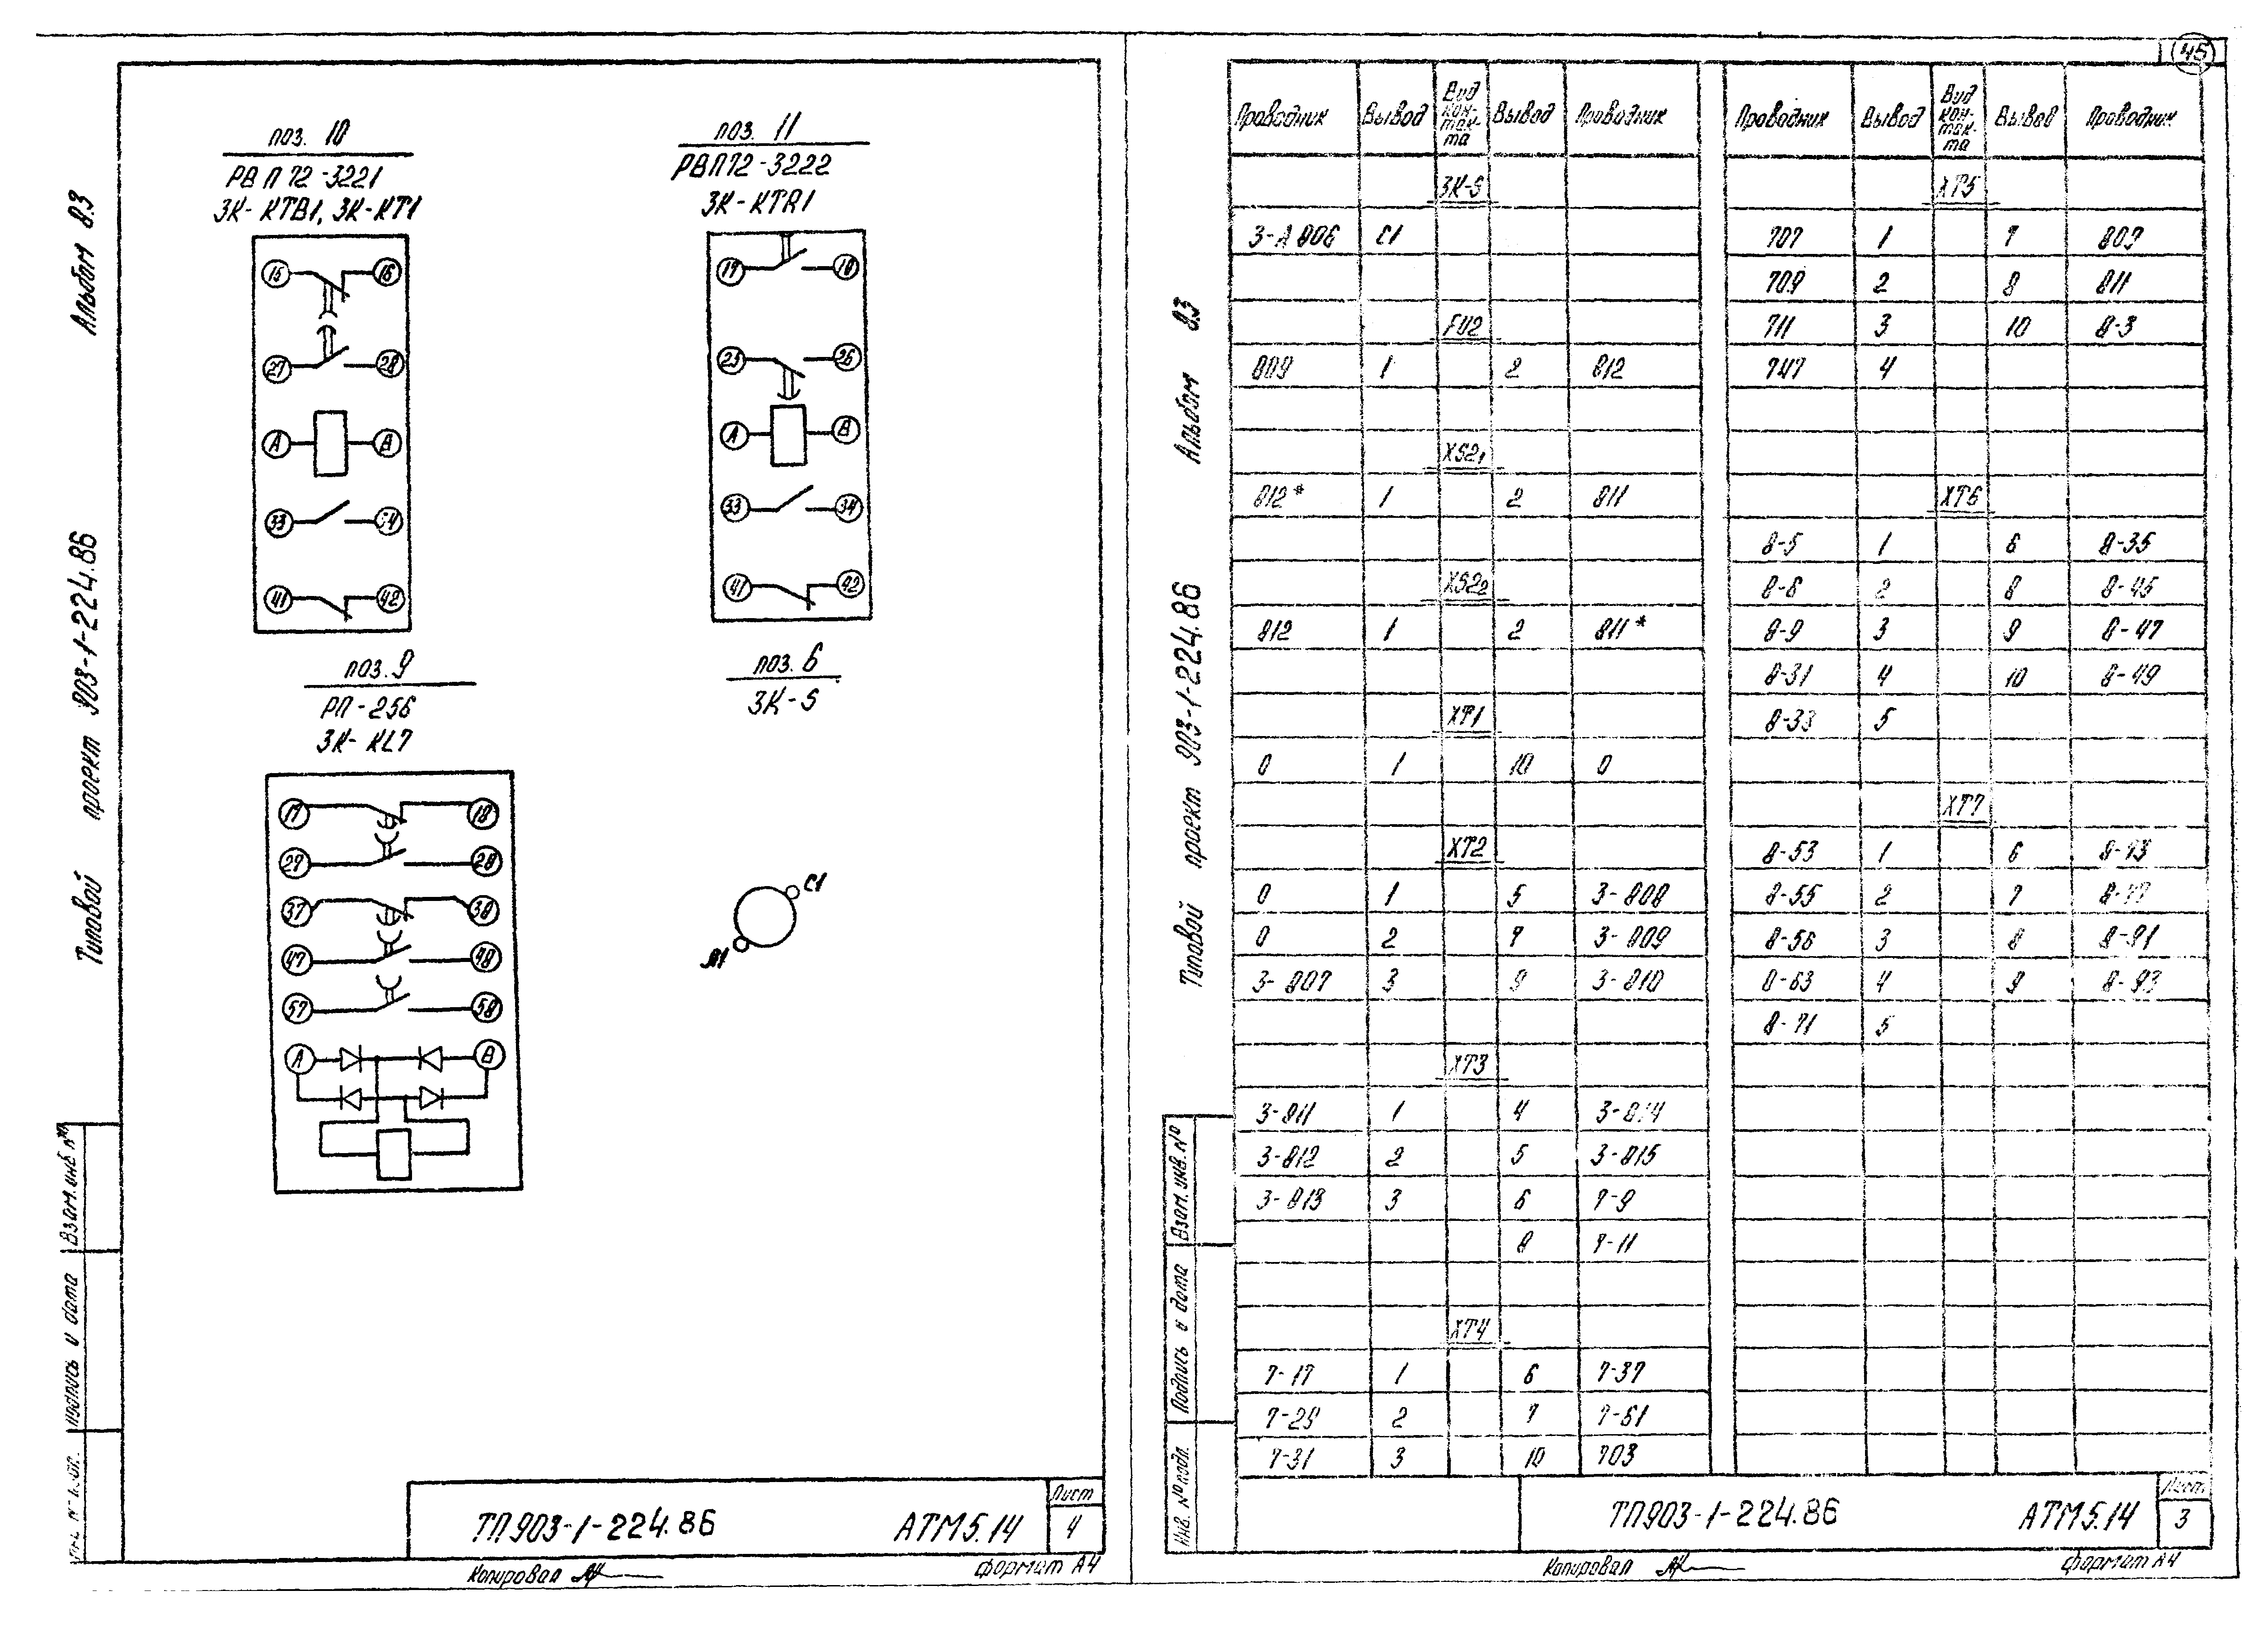 45
Альбом 8.3
Типовой проект 903-1-224.86
поз. 10
РВП72-3221
3К-КТВ1, 3К-КТ1
15 16
27 28
А В
33 34
41 42
поз. 11
РВП72-3222
17 18
25 26
А В
33 34
41 42
поз. 9
РП-256
3К-KL7
17 18
27 28
37 38
47 48
57 58
А В
поз. 6
3К-S
С1
Взам. инв. №
Подпись и дата
ТП903-1-224.86 АТМ5.14
Лист
4
Копировал
формат А4
Альбом 8.3
Типовой проект 903-1-224.86
Проводник Вывод Вид кон-так-та Вывод Проводник
3К-S
3-А806 С1
FU2
809 1 2 812
XS2₁
812* 1 2 811
XS2₂
812 1 2 811*
XT1
0 1 10 0
XT2
0 1 5 3-808
0 2 7 3-809
3-807 3 9 3-810
XT3
3-811 1 4 3-814
3-812 2 5 3-815
3-813 3 6 7-9
8 7-11
XT4
7-17 1 6 7-37
7-25 2 7
7-31 3 10 703
Проводник Вывод Вид кон-так-та Вывод Проводник
XT5
707 1 7 809
709 2 8 811
711 3 10 8-3
747 4
XT6
8-5 1 6 8-35
2 8 8-45
8-9 3 9 8-47
8-31 4 10 8-49
8-33 5
XT7
8-53 1 6
8-55 2 7
8-56 3 8
8-63 4 9
8-71 5
Взам. инв. №
Подпись и дата
Инв. № подл.
ТП903-1-224.86 АТМ5.14
Лист
3
Копировал
формат А4